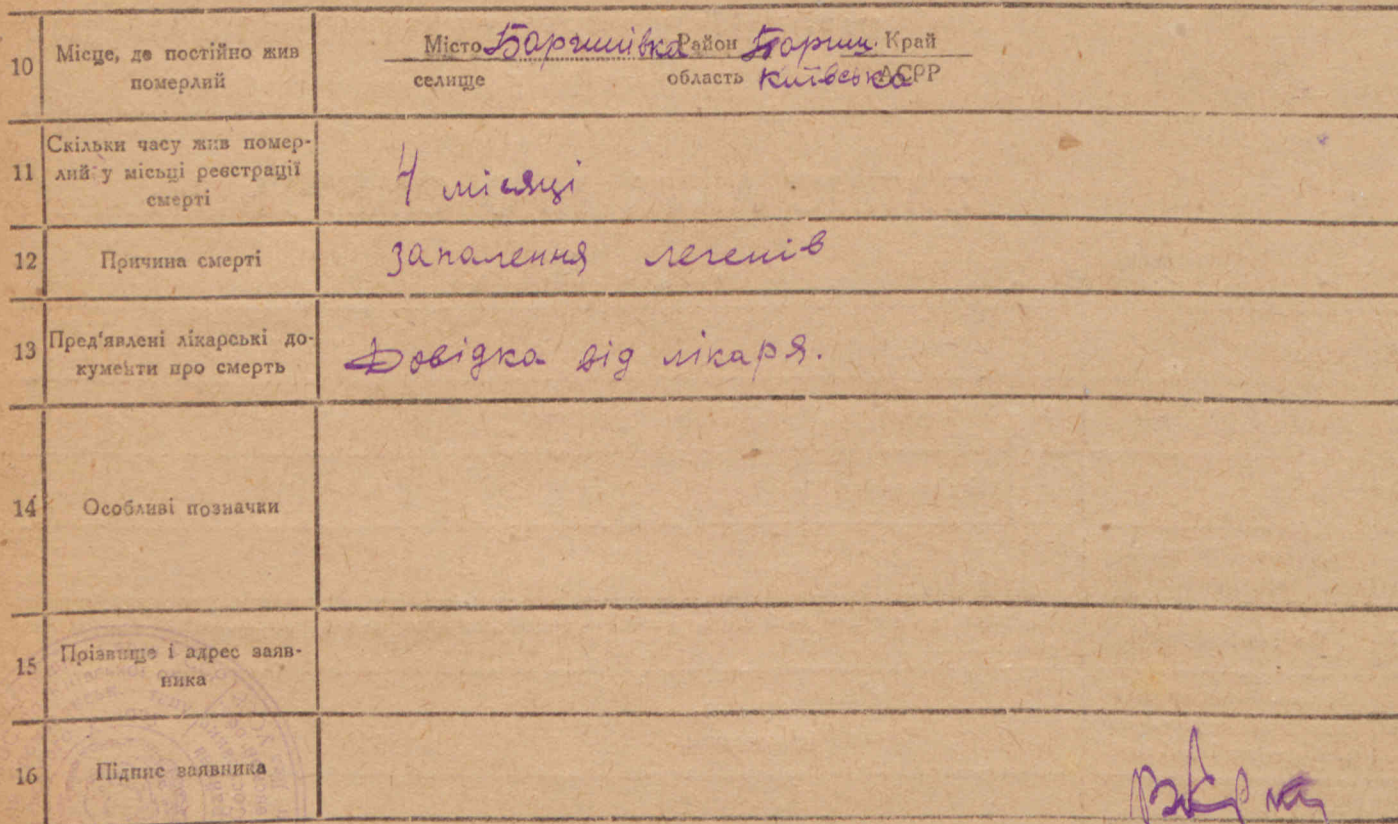 10 Місце, де постійно жив
померлий
Місто Баришівка Район Бариш. Край
селище область Київська АСРР
11 Скільки часу жив помер-
лий у місьці реєстрації
смерті
4 місяці
12 Причина смерті запалення легенів
13 Пред'явлені лікарські до-
кументи про смерть
Довідка від лікаря.
14 Особливі позначки
15 Прізвище і адрес заяв-
ника
16 Підпис заявника